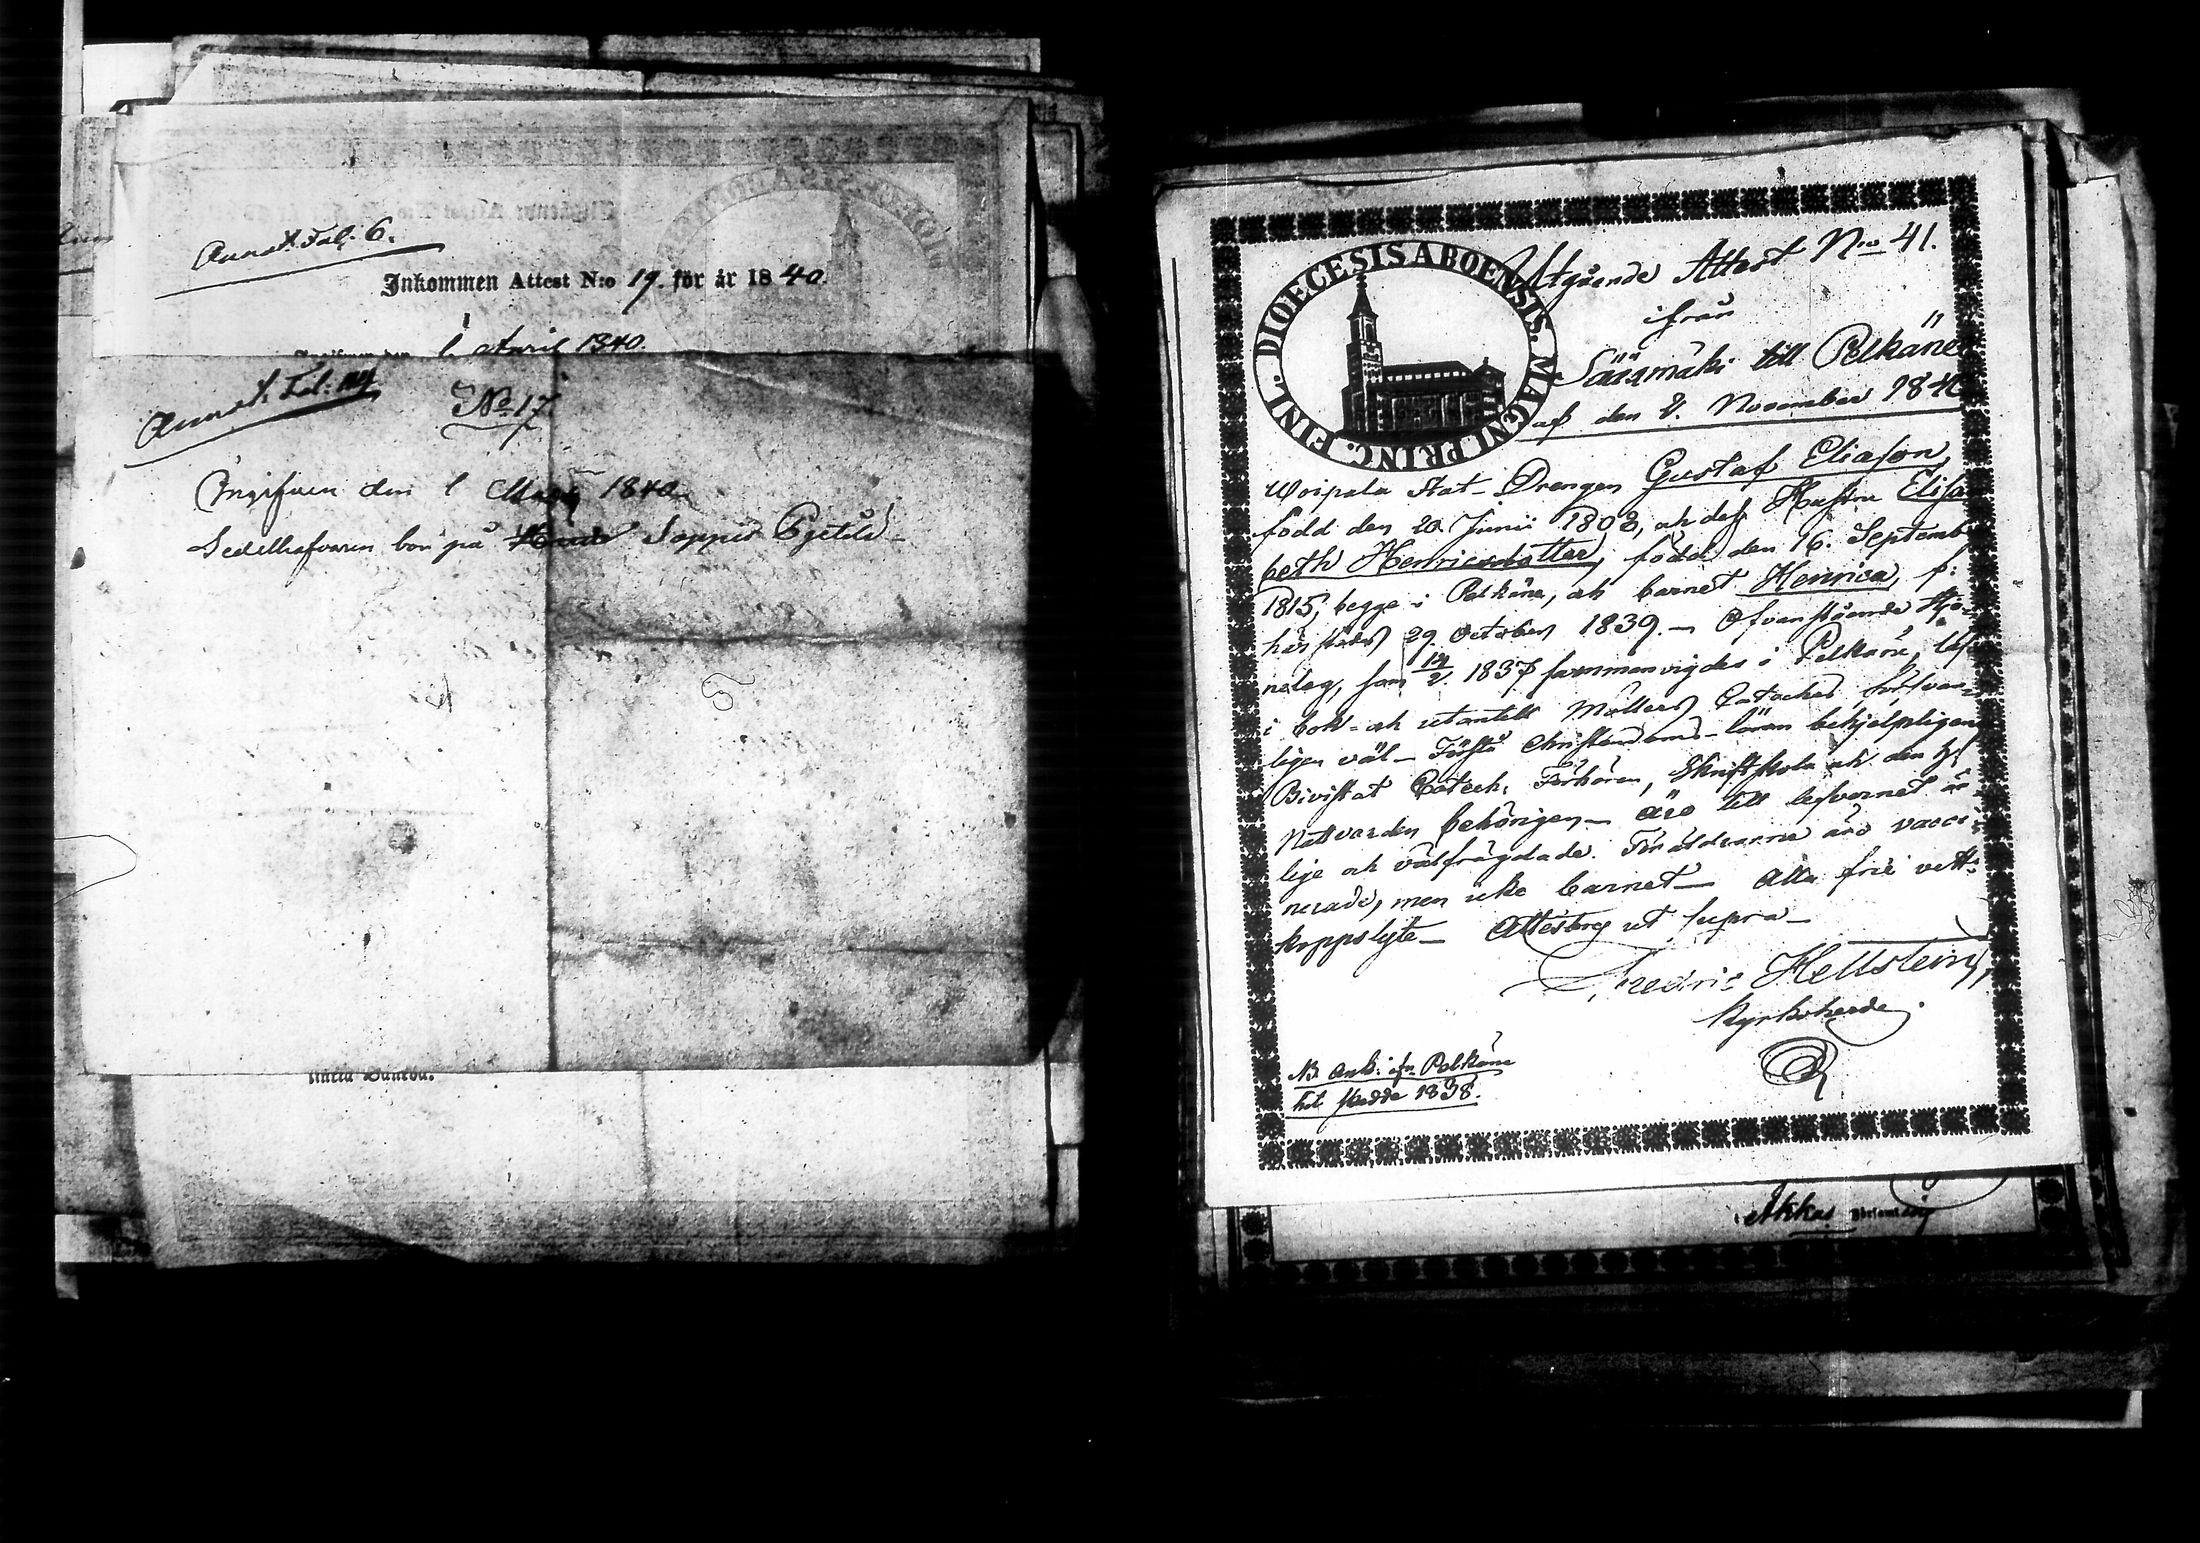 Annot. Fol: 6.
Inkommen Attest N:o 19. för år 1840.
1 April 1840.
Annot. Fol:
No 17
Ingifven den 1 1840
Sedelhafvaren bor på Soppis
DIOECESIS ABOENSIS. MAGNI PRINC. FINL.
Utgående Attest Nro 41.
ifrån
Sääxmäki till Pelkäne
af den 8. November 1840
Woipala Stat-Drengen Gustaf Eliason,
född den 20. Junii 1808, ah des Hustru Elisa
beth Henricsdotter, född den 16. Septemb
1815, begge i Pelkäne, ah barnet Henrica, f.
härstädes 29 October 1839. – Ofvanstående Hjo-
nelag, som 14/2 1837 sammanvigdes i Pelkäne, läsa
i bok- ah utantill Möllers Cateches försvar-
ligen väl – Förstå Christendoms-läran behjelpligen
Bivistat Catech. Förhören, Skriftskola ah den H.
Nattvarden behörigen – äro till lefvernet är-
lige ah välfrägdade. Föräldrarne äro vacci-
nerade, men icke barnet – Alla frie vett.
koppslyte – Attesterar ut supra –
Fredric Hellstein,
Kyrkoherde.
NB. Ank: ifr. Pelkäne
hit skedde 1838.
Akkas